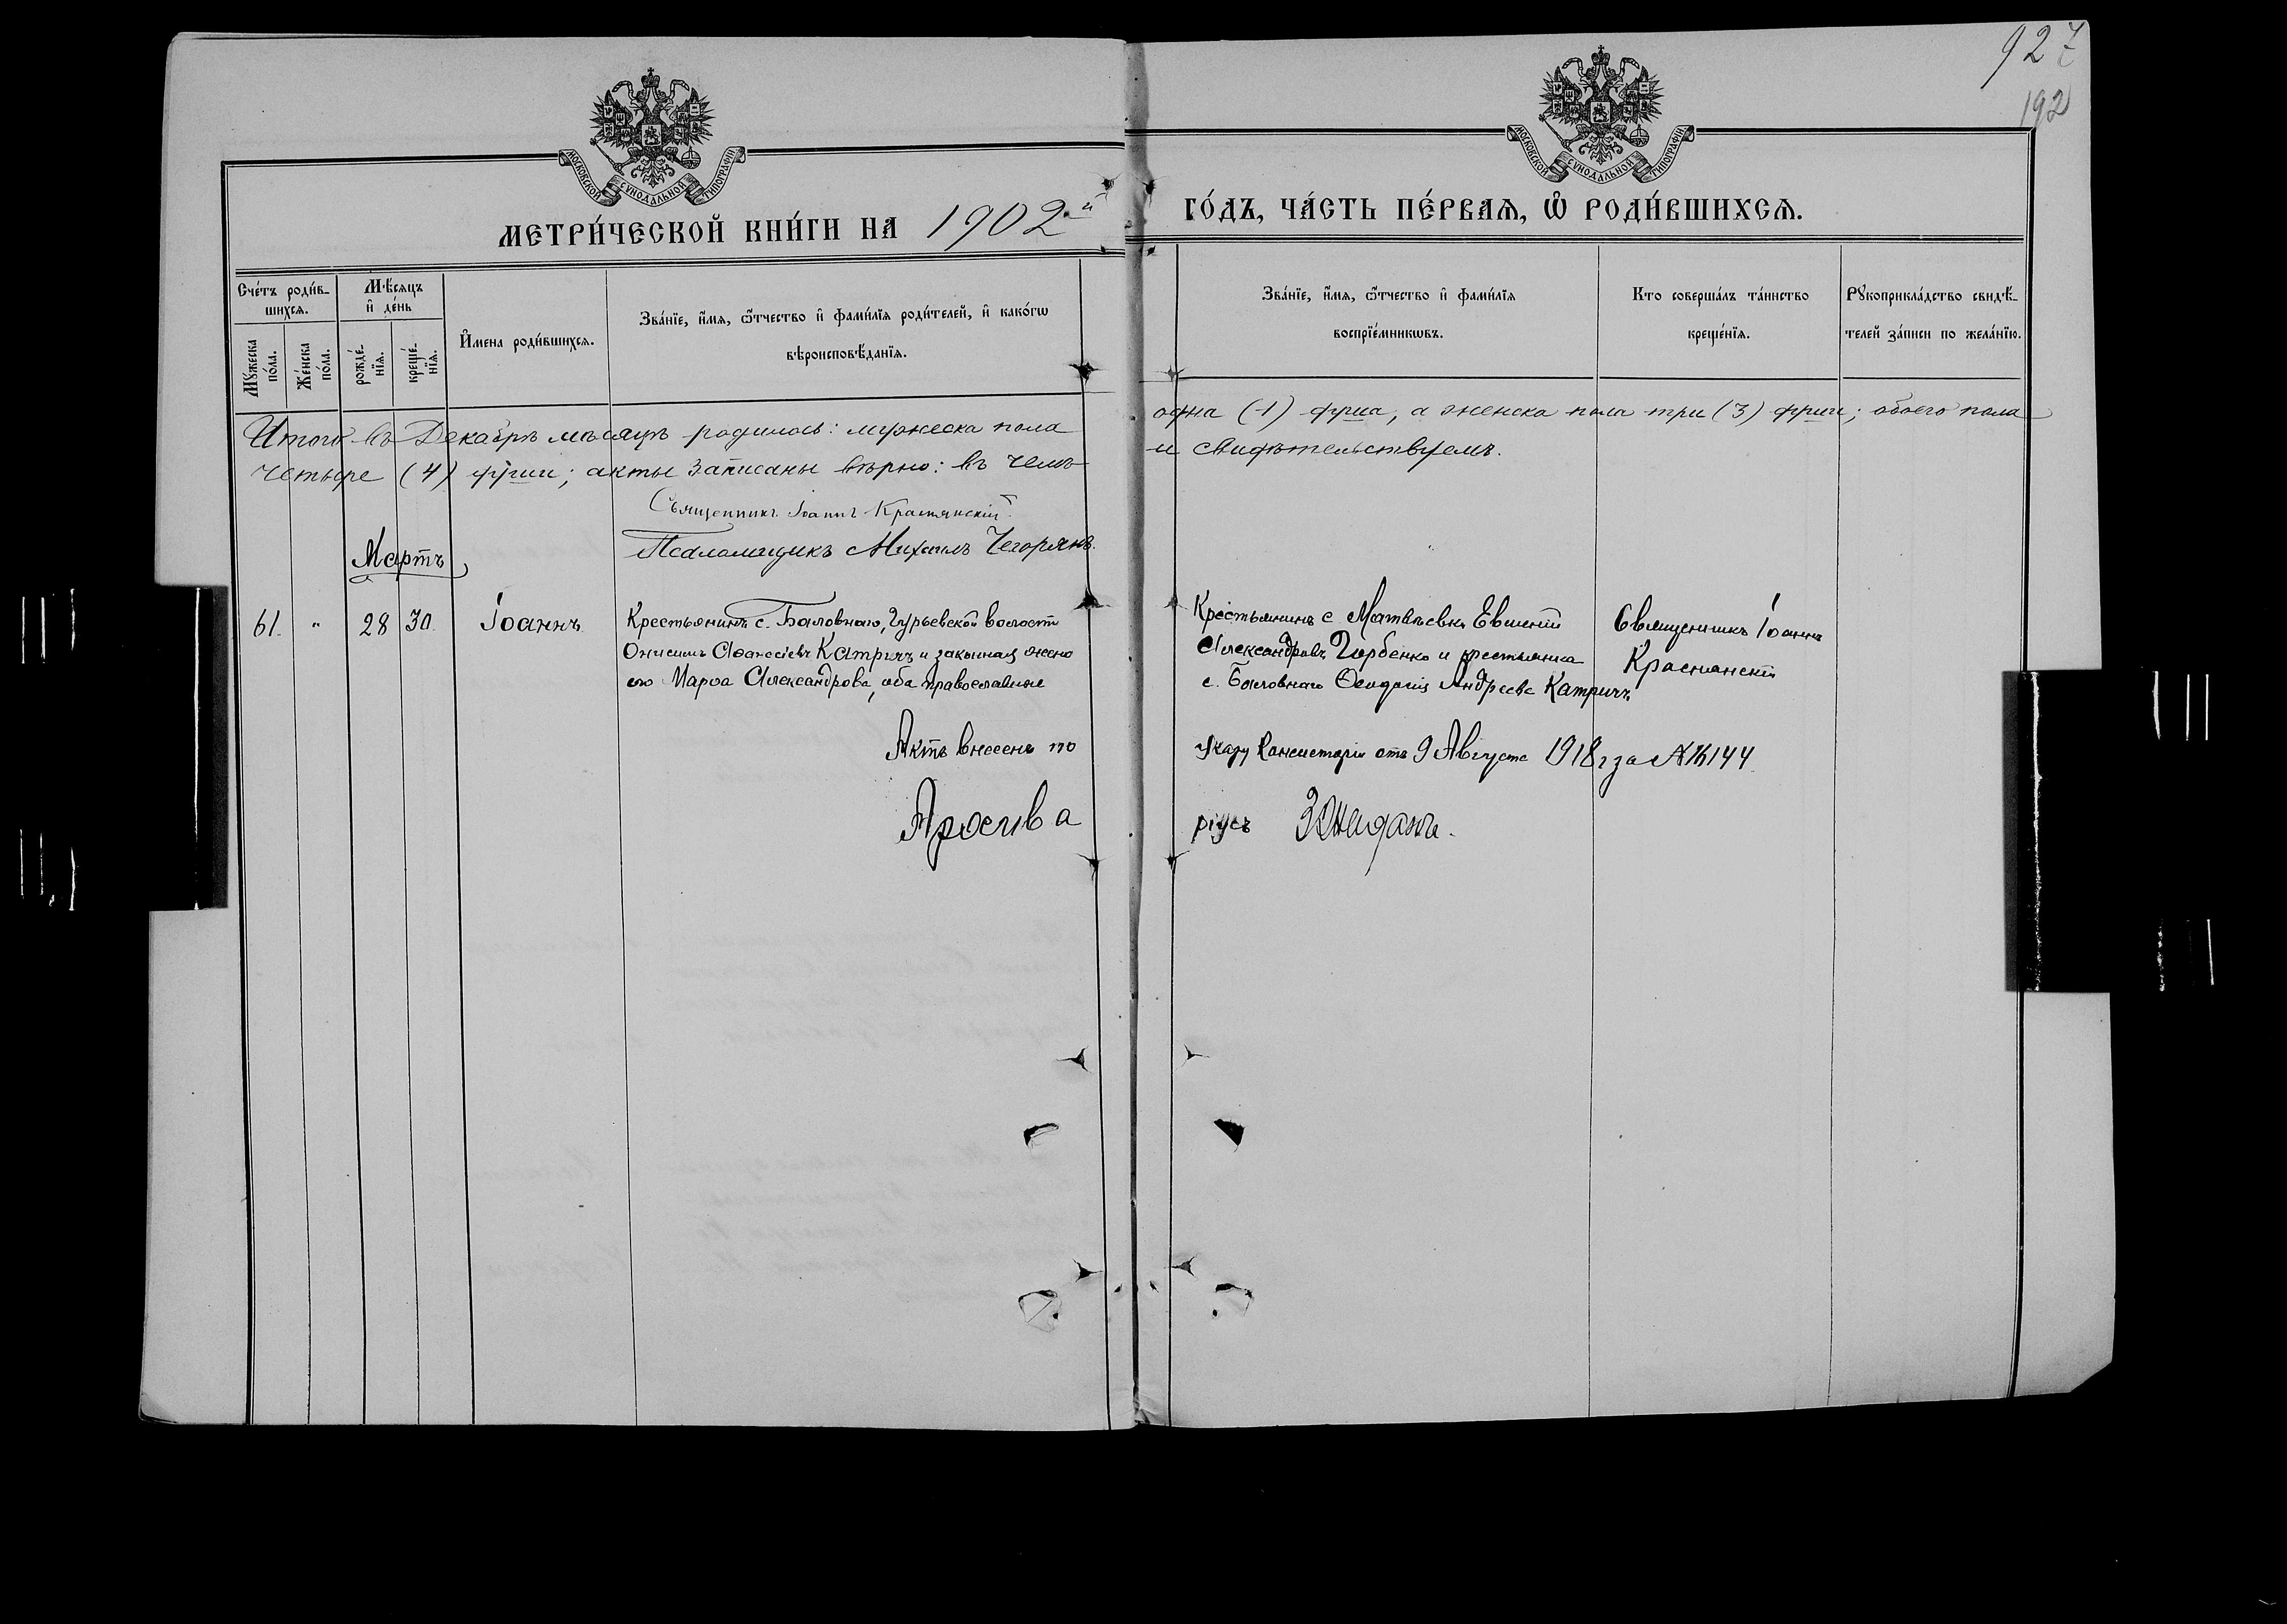 927
192
МОСКОВСКОЙ СѴНОДАЛЬНОЙ ТИПОГРАФІИ
МОСКОВСКОЙ СѴНОДАЛЬНОЙ ТИПОГРАФІИ
МЕТРИ́ЧЕСКОЙ КНИ́ГИ НА 1902й
ГО́ДЪ, ЧА́СТЬ ПЕ́РВАѦ, Ѽ РОДИ́ВШИХСѦ.
Сче́тъ роди́в-
шихсѧ.
Мꙋ́жеска
по́ла.
Же́нска
по́ла.
Мѣ́сѧцъ
и҆ де́нь
рожде́-
нїѧ.
креще́-
нїѧ.
И҆мена роди́вшихсѧ.
Зва́нїе, и҆́мѧ, ѻ҆́тчество и҆ фами́лїѧ роди́телей, и҆ како́гѡ
вѣроисповѣ́данїѧ.
Зва́нїе, и҆́мѧ, ѻ҆́тчество и҆ фами́лїѧ
воспрїе́мникѡвъ.
Кто соверша́лъ та́инство
креще́нїѧ.
Рꙋкоприкла́дство свидѣ́-
телей за́писи по жела́нїю.
Итого въ Декабрѣ мѣсяцѣ родилось: мужеска пола
одна (1) душа, а женска пола три (3) души; обоего пола
четыре (4) души; акты записаны вѣрно: въ чемъ
и свидѣтельствуемъ.
Священникъ Іоаннъ Краснянскій
Псаломщикъ Михаилъ
Мартъ
61. " 28 30 Іоаннъ
Крестьянинъ с. Баловнаго, Гурьевской волости
Онисимъ Аѳанасіевъ Катричъ и законная жена
его Марѳа Александрова, оба православные
Крестьянинъ с Матвѣевки Евгеній
Александровъ Горбенко и крестьянка
с. Баловнаго Ѳеодосія Андреева Катричъ
Священникъ Іоаннъ
Краснянскій
Актъ внесенъ по
указу Консисторіи отъ 9 Августа 1918 г за № 16144
Архива
ріусъ